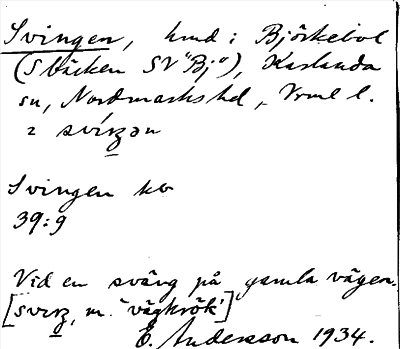 Svingen, hmd i Björkebol
(Sbäcken SV "Bj"), Karlanda
sn, Nordmarks hd, Vrml l.
2 svíŋən
Svingen kv
39:9
Vid en sväng på gamla vägen.
[sviŋ, m. 'vägkrök']
E. Andersson 1934.